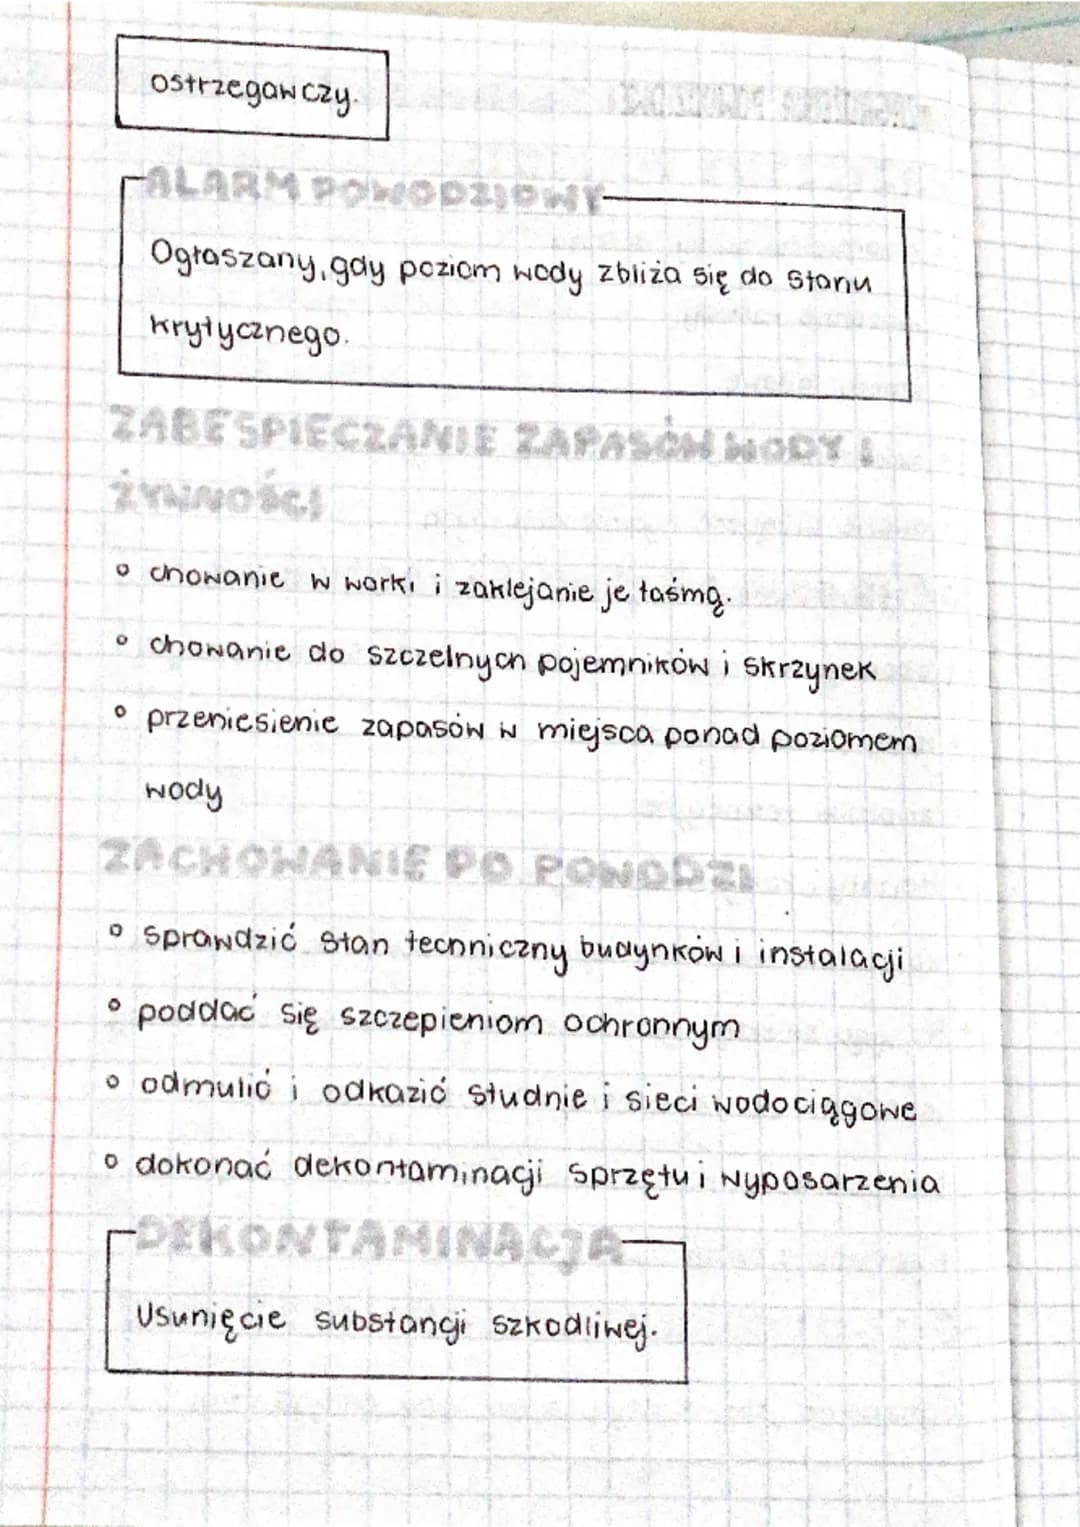 ostrzegawczy.
ALARM POWODZIOWY
Ogłaszany, gdy poziom wody zbliża się do stanu
krytycznego.
ZABESPIECZANIE ZAPASÓW WODY I
ŻYWNOŚCI
chowanie w worki i zaklejanie je taśmą.
chowanie do szczelnych pojemników i skrzynek
przeniesienie zapasów w miejsca ponad poziomem
wody
ZACHOWANIE PO POWODZI
sprawdzić stan techniczny budynków i instalacji
poddać się szczepieniom ochronnym
odmulić i odkazić studnie i sieci wodociągowe
dokonać dekontaminacji sprzętu i wyposarzenia
DEKONTAMINACJA
Usunięcie substancji szkodliwej.